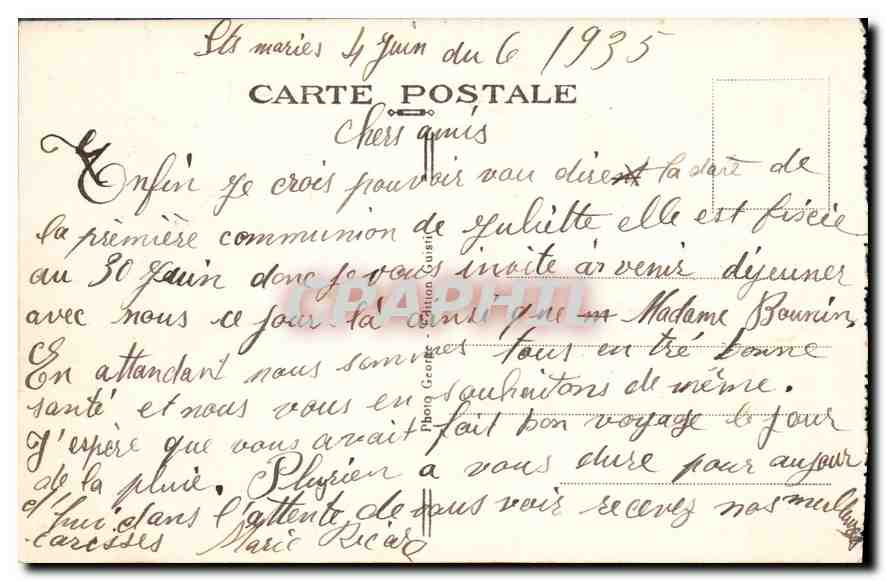 Stes maries 4 Juin du 6 1935
CARTE POSTALE
chers amis
Enfin je crois pouvoir vou dire la date de
la première communion de Juliette elle est fiscée
au 30 Juin donc je vous invite à venir déjeuner
avec nous ce jour là ainsi que Madame Bounin,
En attandant nous sommes tous en tré bonne
santé et nous vous en souhaitons de même.
J'espère que vous avait fait bon voyage le jour
de la pluie. Plurien a vous dire pour aujour
d'hui dans l'attente de vous voir recevez nos meilleures
caresses Marie Ricard
Photo George - Edition Guisti
CPAPHIL